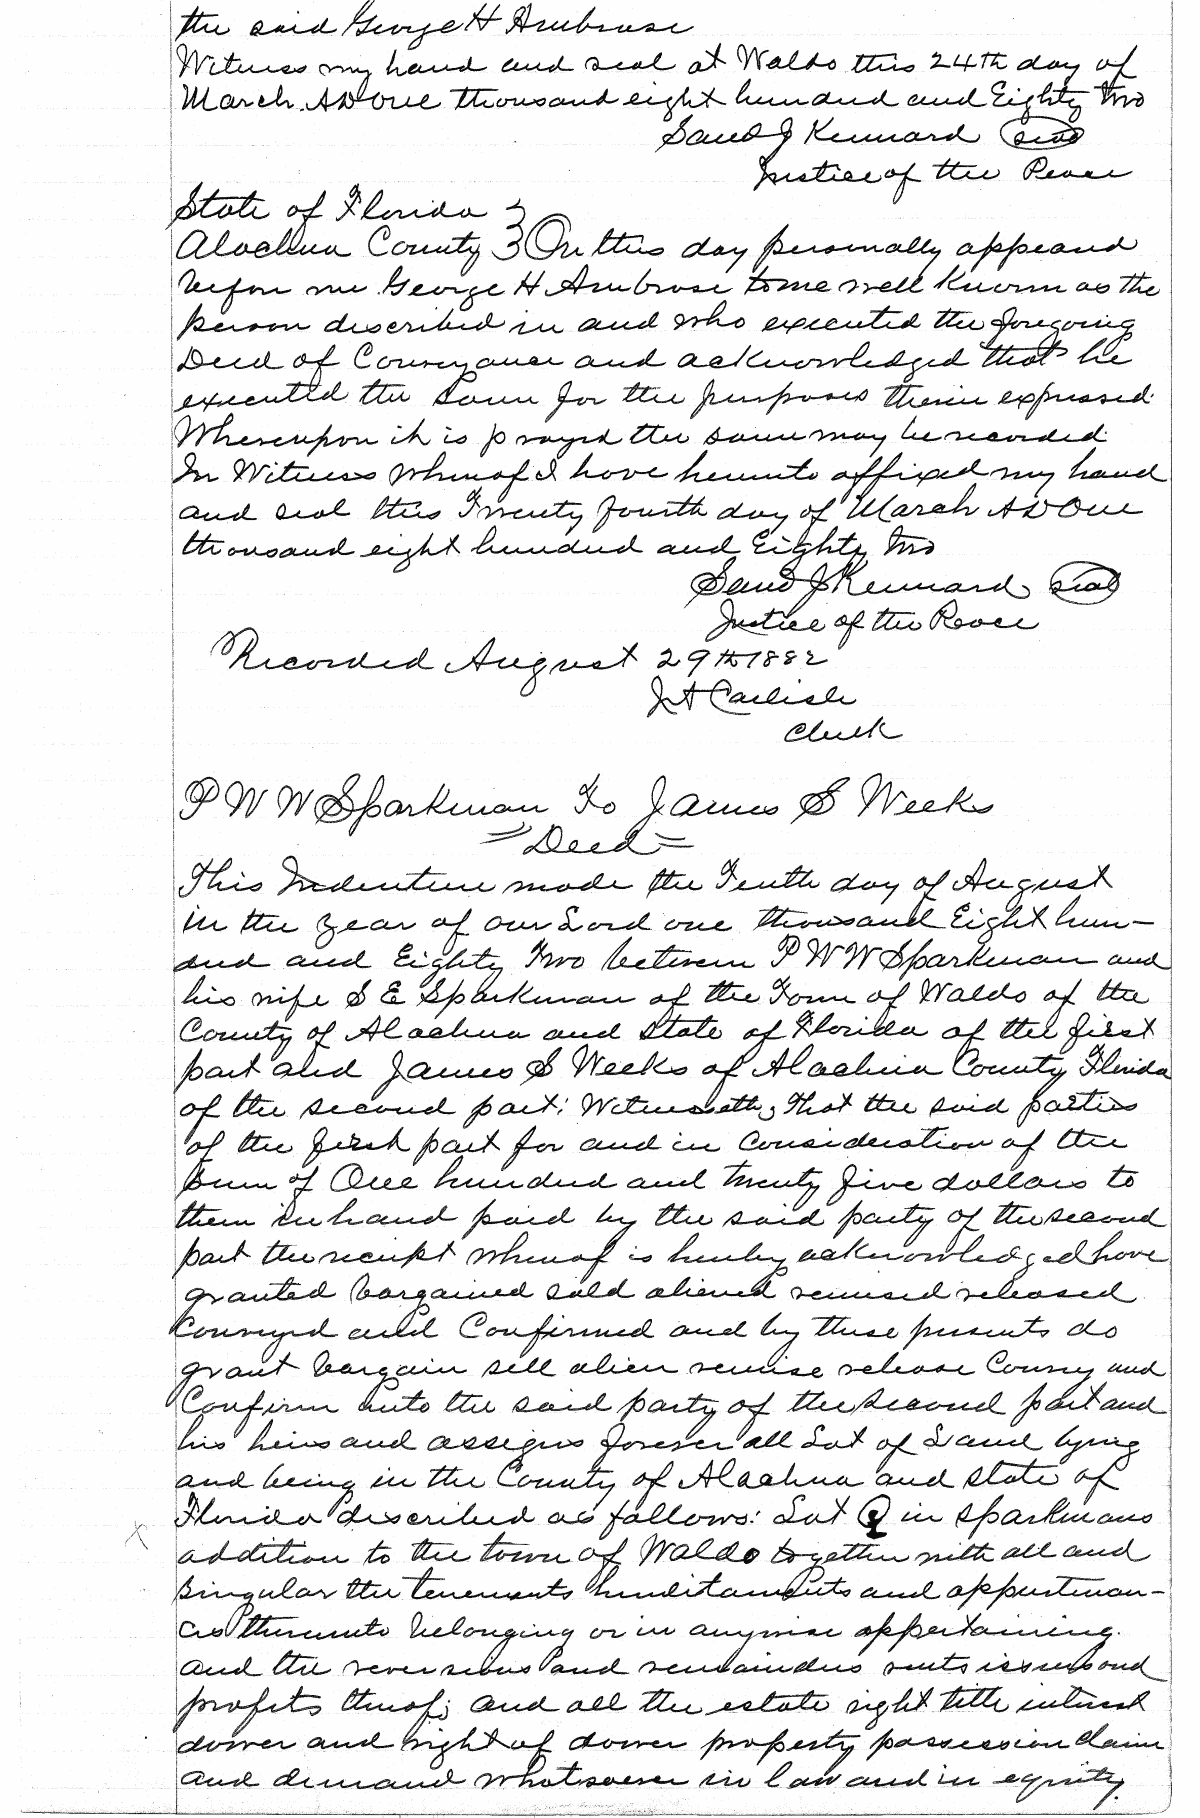 the said George H Ambrose
Witness my hand and seal at Waldo this 24th day of
March AD One thousand eight hundred and Eighty Two
Saml J Kennard (seal)
Justice of the Peace
State of Florida }
Alachua County } On this day personally appeared
before me George H Ambrose to me well known as the
person described in and who executed the foregoing
Deed of Conveyance and acknowledged that he
executed the same for the purposes therein expressed
Whereupon it is prayed the same may be recorded
In Witness Whereof I have hereunto affixed my hand
and seal this Twenty fourth day of March AD One
thousand eight hundred and Eighty Two
Saml J Kennard (seal)
Justice of the Peace
Recorded August 29th 1882
J A Carlisle
Clerk
P W W Sparkman To James S Weeks
=Deed=
This Indenture made the Tenth day of August
in the year of our Lord one thousand Eight hun-
dred and Eighty Two between P W W Sparkman and
his wife S E Sparkman of the Town of Waldo of the
County of Alachua and State of Florida of the first
part and James S Weeks of Alachua County Florida
of the second part; Witnesseth, That the said parties
of the first part for and in Consideration of the
Sum of One hundred and twenty five dollars to
them in hand paid by the said party of the second
part the receipt whereof is hereby acknowledged have
granted bargained sold aliened remised released
Conveyed and Confirmed and by these presents do
grant bargain sell alien remise release Convey and
Confirm unto the said party of the second part and
his heirs and assigns forever all Lot of Land lying
and being in the County of Alachua and State of
Florida described as follows: Lot Q in Sparkmans
addition to the town of Waldo together with all and
singular the tenements hereditaments and appurtenan-
ces thereunto belonging or in anywise appertaining
and the reversions and remainders rents issues and
profits thereof; and all the estate right title interest
dower and right of dower property possession Claim
and demand whatsoever in law and in equity.